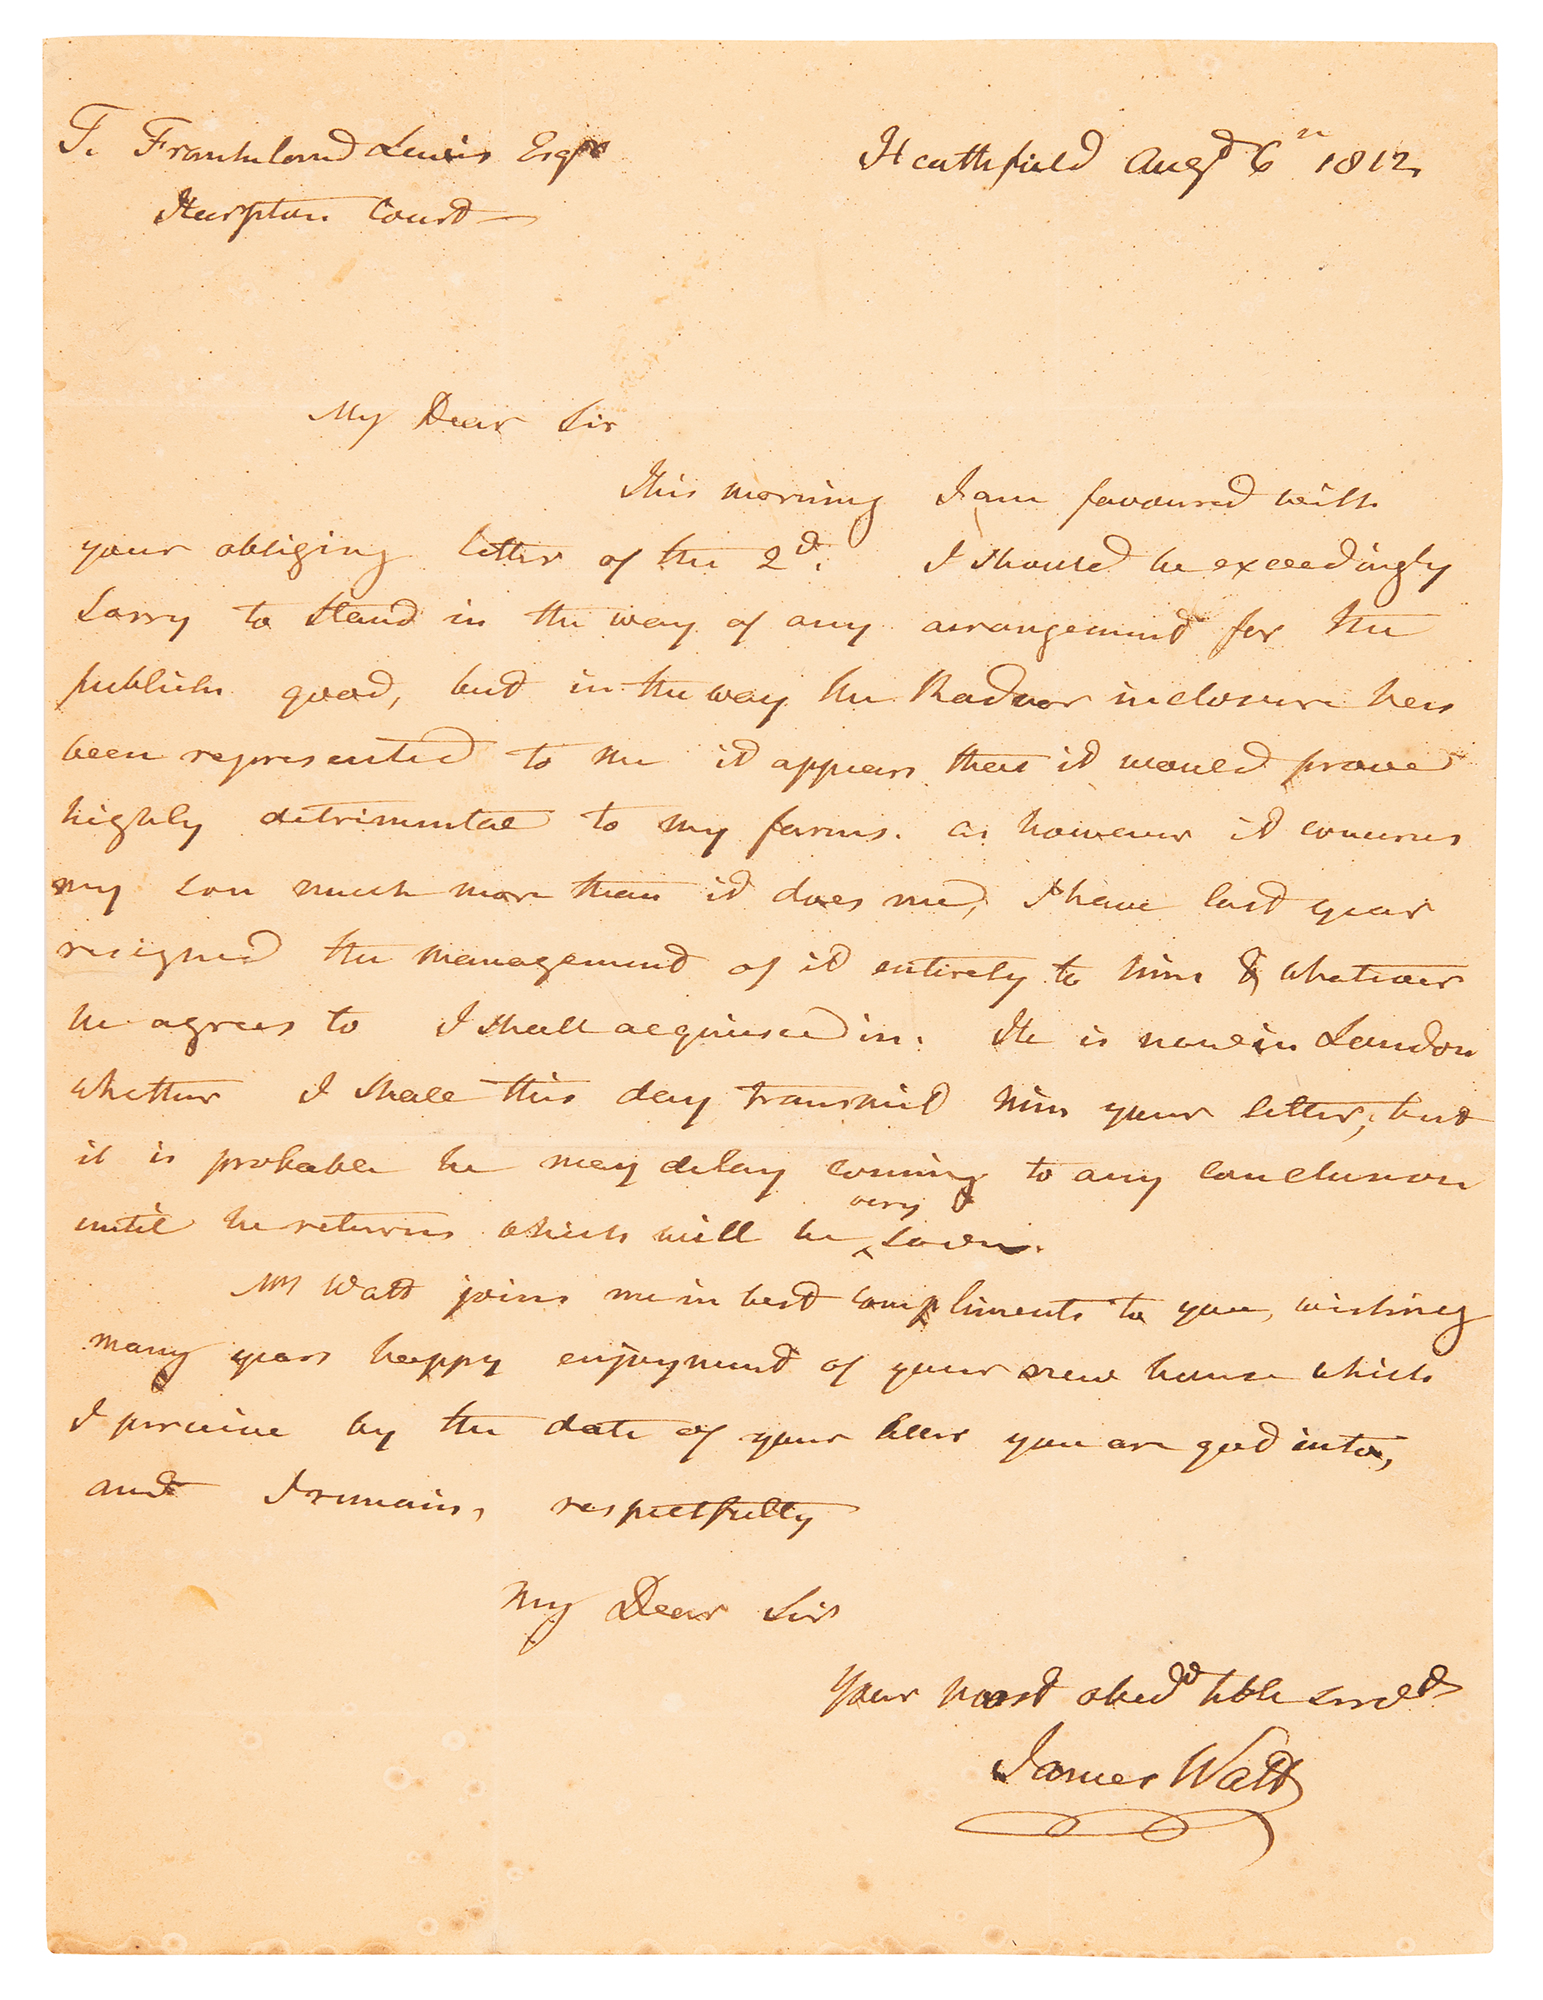 T. Frankland Lewis Esqre
Heathfield Augt 6th 1812
Harpton Court
My Dear Sir
This morning I am favoured with
your obliging letter of the 2d. I should be exceedingly
sorry to stand in the way of any arrangement for the
publick good, but in the way the Radnor inclosure has
been represented to me it appears that it would prove
highly detrimental to my farms. as however it concerns
my son much more than it does me, I have last year
resigned the management of it entirely to him & whatever
he agrees to I shall acquiesce in. He is now in London
whether I shall this day transmit him your letter, but
it is probable he may delay coming to any conclusion
until he returns which will be very soon.
Mrs Watt joins me in best compliments to you, wishing
many years happy enjoyment of your new house which
I perceive by the date of your letter you are got into,
and I remain, respectfully
My Dear Sir
Your most obedt hble servt
James Watt